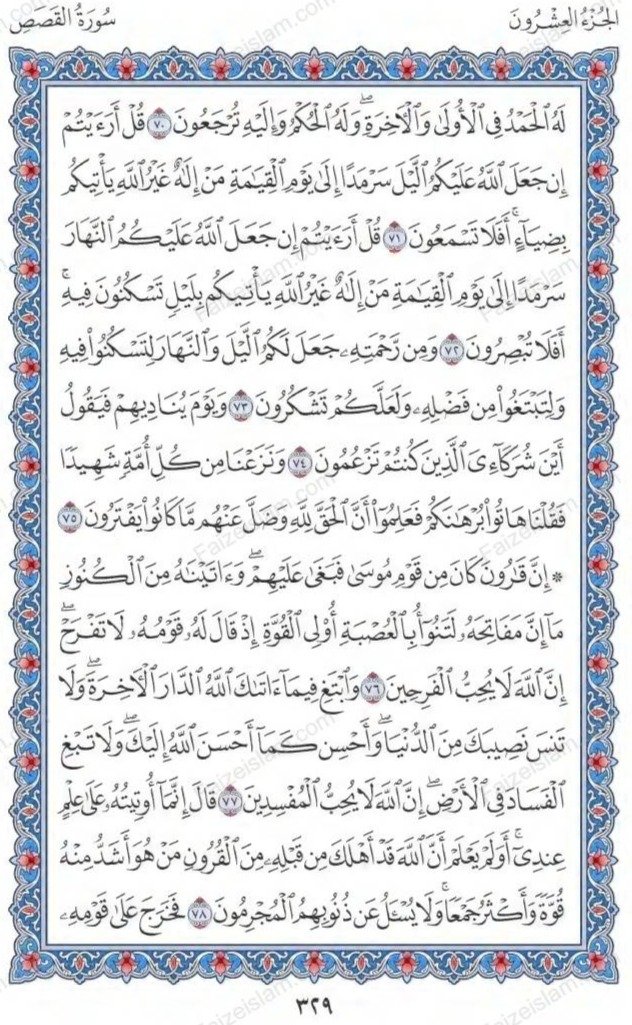 الجُزْءُ العِشْرُونَ
سُورَةُ القَصَصِ
لَهُ الْحَمْدُ فِى الْأُولَىٰ وَالْآخِرَةِ ۖ وَلَهُ الْحُكْمُ وَإِلَيْهِ تُرْجَعُونَ ٧٠ قُلْ أَرَءَيْتُمْ
إِن جَعَلَ اللَّهُ عَلَيْكُمُ الَّيْلَ سَرْمَدًا إِلَىٰ يَوْمِ الْقِيَٰمَةِ مَنْ إِلَٰهٌ غَيْرُ اللَّهِ يَأْتِيكُم
بِضِيَآءٍ ۚ أَفَلَا تَسْمَعُونَ ٧١ قُلْ أَرَءَيْتُمْ إِن جَعَلَ اللَّهُ عَلَيْكُمُ النَّهَارَ
سَرْمَدًا إِلَىٰ يَوْمِ الْقِيَٰمَةِ مَنْ إِلَٰهٌ غَيْرُ اللَّهِ يَأْتِيكُم بِلَيْلٍ تَسْكُنُونَ فِيهِ ۚ
أَفَلَا تُبْصِرُونَ ٧٢ وَمِن رَّحْمَتِهِۦ جَعَلَ لَكُمُ الَّيْلَ وَالنَّهَارَ لِتَسْكُنُوا۟ فِيهِ
وَلِتَبْتَغُوا۟ مِن فَضْلِهِۦ وَلَعَلَّكُمْ تَشْكُرُونَ ٧٣ وَيَوْمَ يُنَادِيهِمْ فَيَقُولُ
أَيْنَ شُرَكَآءِىَ الَّذِينَ كُنتُمْ تَزْعُمُونَ ٧٤ وَنَزَعْنَا مِن كُلِّ أُمَّةٍ شَهِيدًا
فَقُلْنَا هَاتُوا۟ بُرْهَٰنَكُمْ فَعَلِمُوٓا۟ أَنَّ الْحَقَّ لِلَّهِ وَضَلَّ عَنْهُم مَّا كَانُوا۟ يَفْتَرُونَ ٧٥
* إِنَّ قَٰرُونَ كَانَ مِن قَوْمِ مُوسَىٰ فَبَغَىٰ عَلَيْهِمْ ۖ وَءَاتَيْنَٰهُ مِنَ الْكُنُوزِ
مَآ إِنَّ مَفَاتِحَهُۥ لَتَنُوٓأُ بِالْعُصْبَةِ أُو۟لِى الْقُوَّةِ إِذْ قَالَ لَهُۥ قَوْمُهُۥ لَا تَفْرَحْ ۖ
إِنَّ اللَّهَ لَا يُحِبُّ الْفَرِحِينَ ٧٦ وَابْتَغِ فِيمَآ ءَاتَىٰكَ اللَّهُ الدَّارَ الْآخِرَةَ ۖ وَلَا
تَنسَ نَصِيبَكَ مِنَ الدُّنْيَا ۖ وَأَحْسِن كَمَآ أَحْسَنَ اللَّهُ إِلَيْكَ ۖ وَلَا تَبْغِ
الْفَسَادَ فِى الْأَرْضِ ۖ إِنَّ اللَّهَ لَا يُحِبُّ الْمُفْسِدِينَ ٧٧ قَالَ إِنَّمَآ أُوتِيتُهُۥ عَلَىٰ عِلْمٍ
عِندِىٓ ۚ أَوَلَمْ يَعْلَمْ أَنَّ اللَّهَ قَدْ أَهْلَكَ مِن قَبْلِهِۦ مِنَ الْقُرُونِ مَنْ هُوَ أَشَدُّ مِنْهُ
قُوَّةً وَأَكْثَرُ جَمْعًا ۚ وَلَا يُسْـَٔلُ عَن ذُنُوبِهِمُ الْمُجْرِمُونَ ٧٨ فَخَرَجَ عَلَىٰ قَوْمِهِۦ
٣٢٩
Faizeislam.com